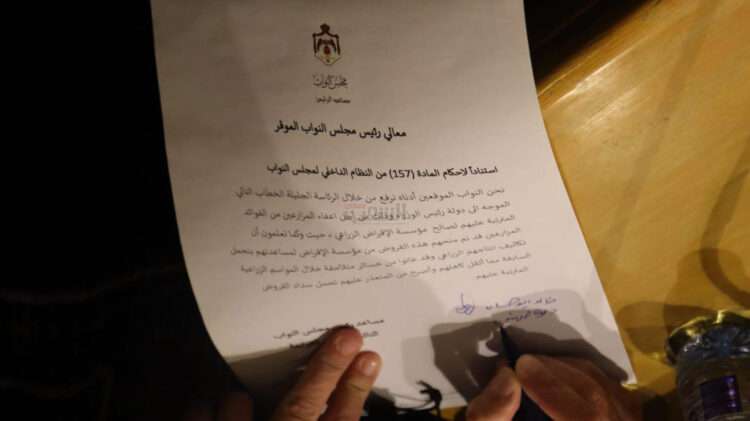 مجلس النواب
مساعد الرئيس
معالي رئيس مجلس النواب الموقر
استناداً لاحكام المادة (157) من النظام الداخلي لمجلس النواب
نحن النواب الموقعين أدناه نرفع من خلال الرئاسة الجليلة الخطاب التالي
الموجه الى دولة رئيس الوزراء من اعفاء المزارعين من الفوائد
المترتبة عليهم لصالح مؤسسة الإقراض الزراعي ، حيث وكما تعلمون أن
المزارعين قد تم منحهم هذه القروض من مؤسسة الإقراض لمساعدتهم بتحمل
تكاليف انتاجهم الزراعي وقد عانوا من خسائر متلاحقة خلال المواسم الزراعية
السابقة مما أثقل كاهلهم وأصبح من المتعذر عليهم تحمل سداد القروض
المترتبة عليهم
مساعد رئيس مجلس النواب